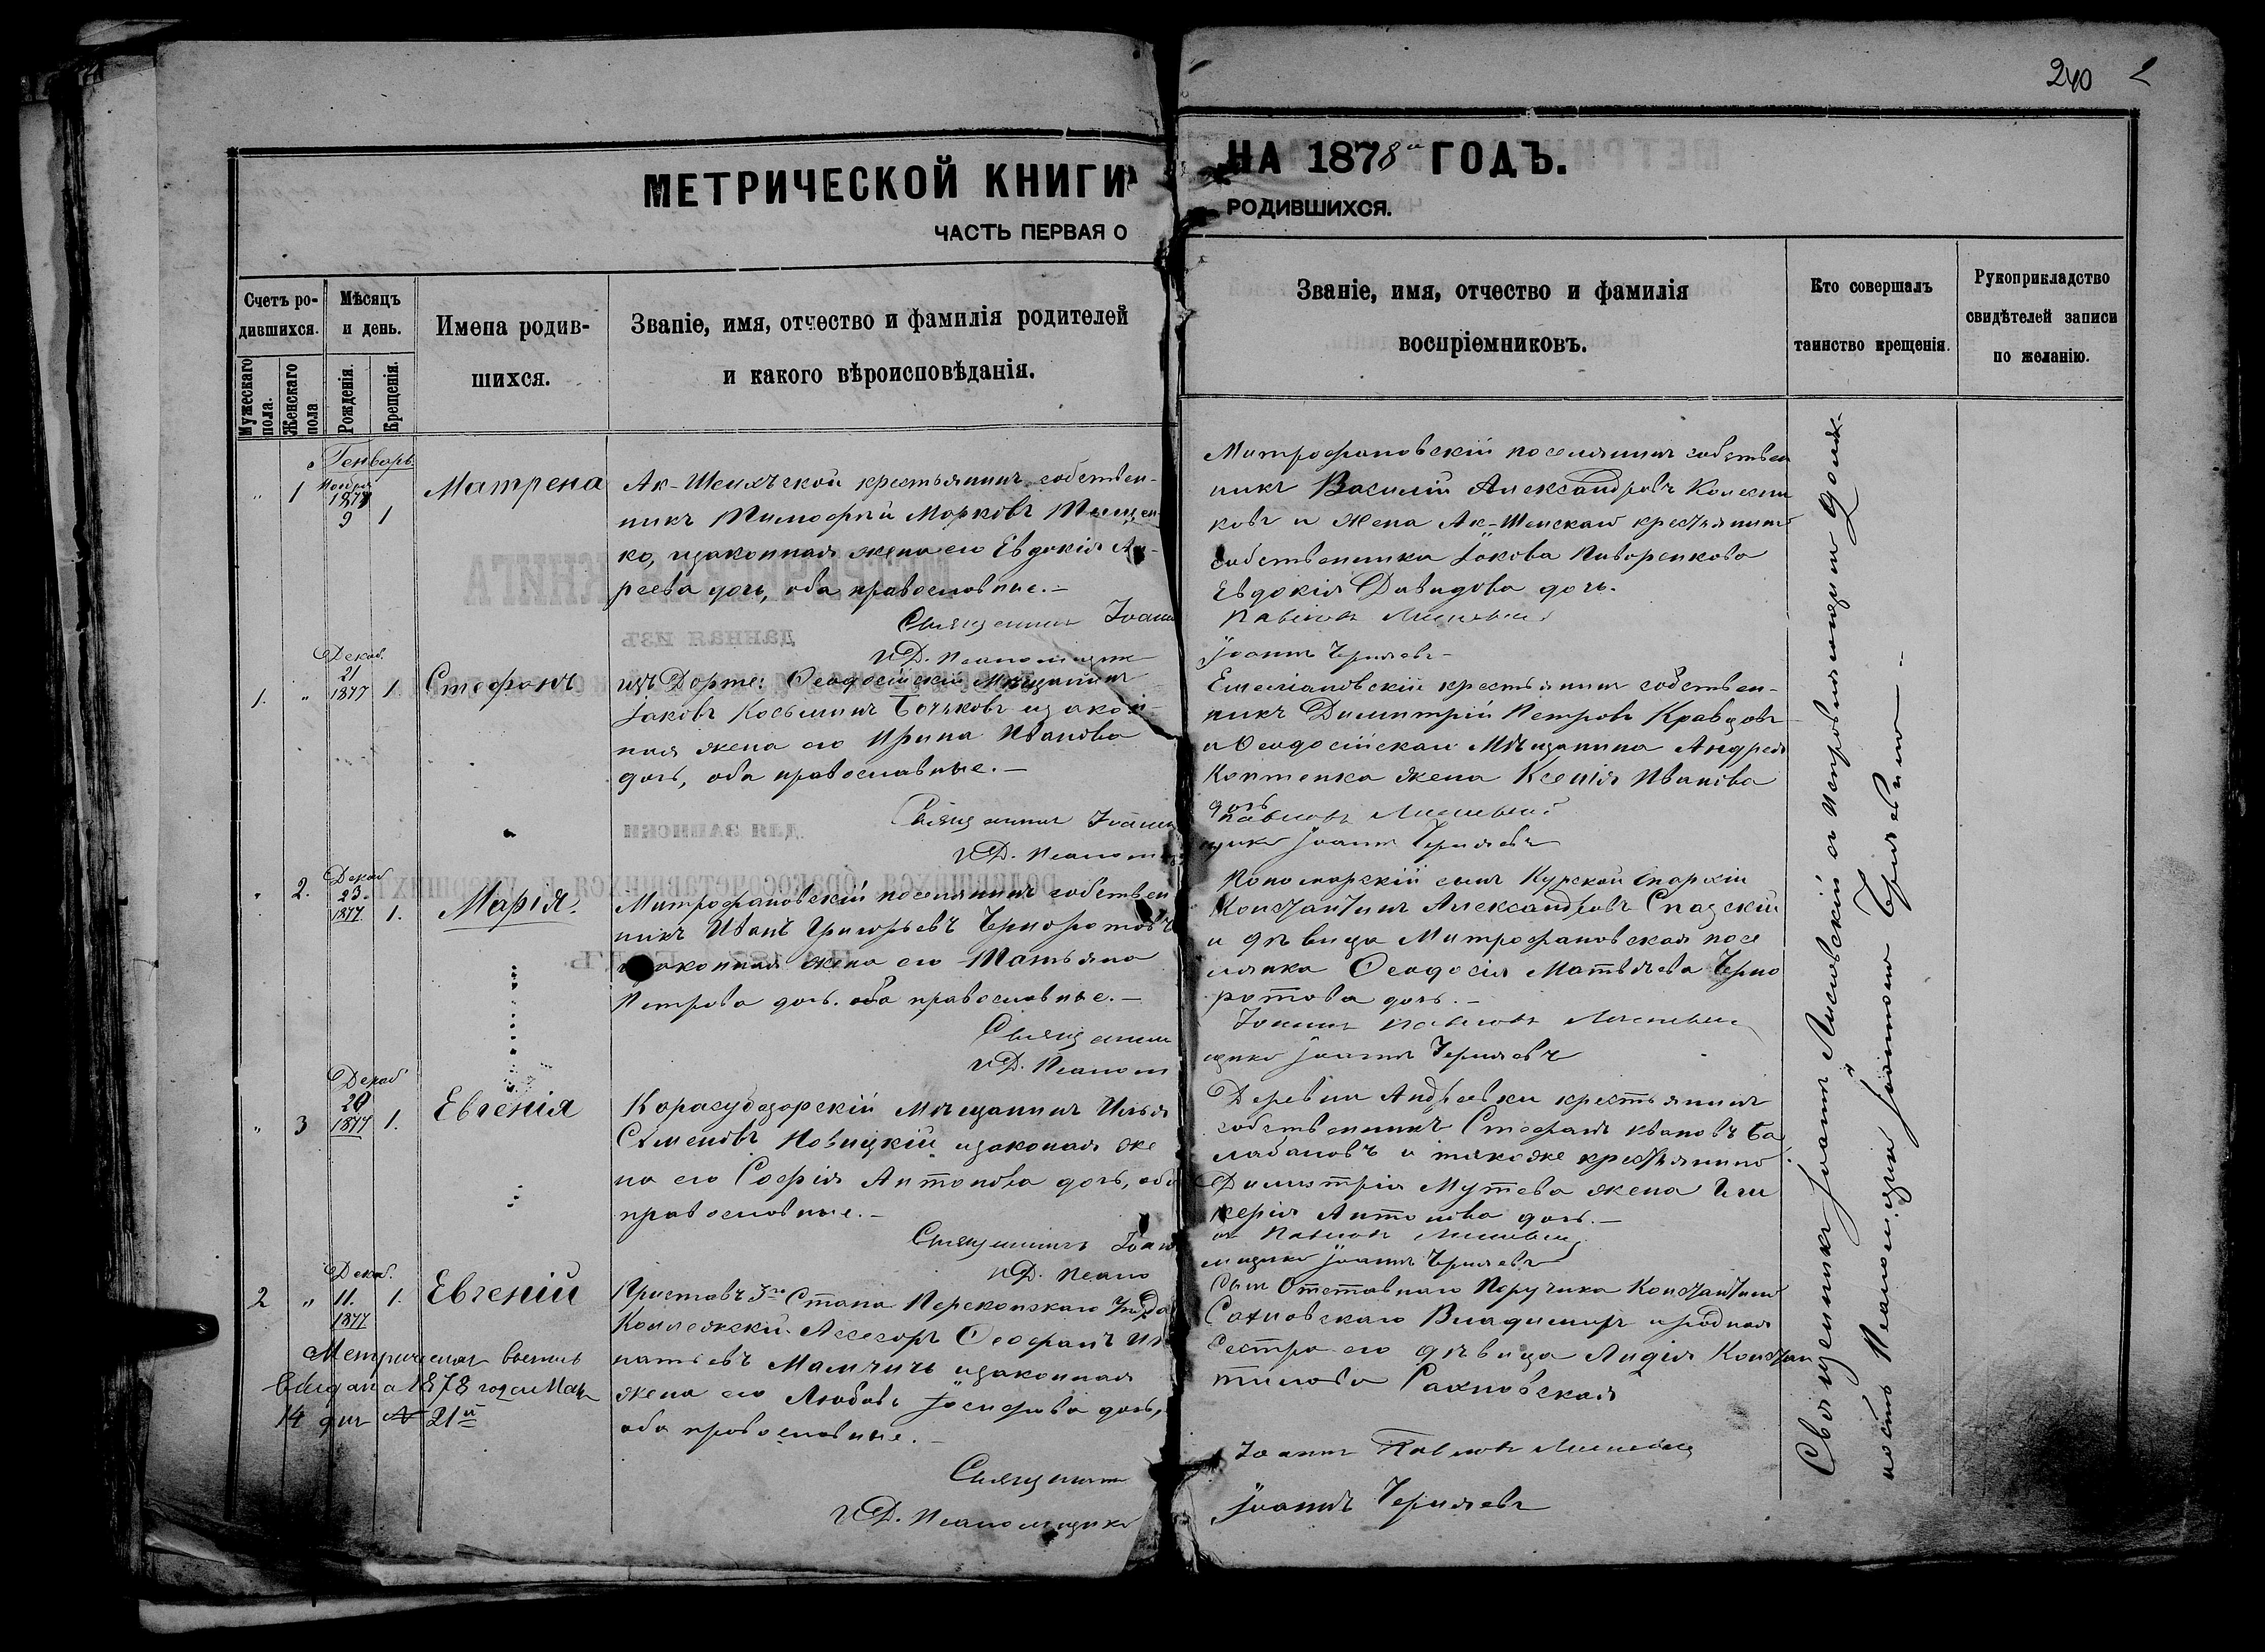 240
МЕТРИЧЕСКОЙ КНИГИ НА 1878й ГОДЪ.
ЧАСТЬ ПЕРВАЯ О РОДИВШИХСЯ.
Счетъ ро-
дившихся.
Мужескаго пола.
Женскаго пола
Мѣсяцъ
и день.
Рожденія.
Крещенія.
Имена родив-
шихся.
Званіе, имя, отчество и фамилія родителей
и какого вѣроисповѣданія.
Званіе, имя, отчество и фамилія
воспріемниковъ.
Кто совершалъ
таинство крещенія.
Рукоприкладство
свидѣтелей записи
по желанію.
Генварь
" 1
Ноября
9
1
Матрена
Ак-Шеихъской крестьянинъ собствен-
никъ Тимофѣй Марковъ
ко, изаконная жена его Евдокія
реева дочь, оба православные.-
Священникъ Іоанн
И.Д. Псаломщик
Митрофановскій поселянинъ собствен
никъ Василій Александровъ Колесни
ковъ и жена Ак-Шеихскаго крестьянина
собственника Іакова
Евдокія Давидова дочь.
Павловъ
Іоаннъ Чернявъ
Декаб.
1. "
21
1877
1
Стефанъ
изъ Дорте: Ѳеодосійскій Мѣщанинъ
Іаковъ Косьминъ изакон-
ная жена его Ирина Иванова
дочь, оба православные.-
Священникъ Іоанн
И.Д. Псалом
Емельяновскій крестьянинъ собствен-
никъ Димитрій Петровъ Кравцовъ
и Ѳеодосійскаго Мѣщанина Андрея
жена Ксенія Иванова
дочь
Павловъ
щикъ Іоаннъ Чернявъ
Декаб
" 2.
23.
1877.
1.
Марія.
Митрофановскій поселянинъ собствен
никъ Иванъ Григорьевъ Чернороговъ
изаконная жена его Татьяна
Петрова дочь. оба православные.-
Священник
И.Д. Псалом
Пономарскій сынъ Курской Епархіи
Константинъ Александровъ Спасскій
и дѣвица Митрофановская посе
лянка Ѳеодосія Матвѣева Черно
дочь.-
Іоаннъ Павловъ
щикъ Іоаннъ Чернявъ
Декаб
" 3
1877
1.
Евгенія
Карасубазарскій Мѣщанинъ Илья
Семеновъ Новицкій изаконая же
на его Софія Антонова дочь, оба
православные.-
Священникъ Іоан
И.Д. Псало
Деревни Андреевки крестьянинъ
собственникъ Стефанъ Ивановъ Ба
лабановъ и такоже крестьянина
Димитрія жена Гли
керія Антонова дочь.-
Павловъ
мщикъ Іоаннъ Чернявъ
Декаб.
2 " 11.
1877
1.
Евгеній
Метрическая выпись
выдана 1878 года Мая
14 дня № 21й
Приставъ 3го Стана Перекопскаго Уѣзда
Коллежскій Ассесоръ Ѳеофанъ Иг
натьевъ изаконная
жена его Любовь Іосифова дочь,
оба православные.-
Священник
И.Д. Псаломщика
Сынъ Отставнаго Поручика Константина
Сахновскаго Владимиръ и родная
Сестра его дѣвица Лидія Констан
тинова Сахновская
Іоаннъ Павловъ
Іоаннъ Чернявъ
Священникъ Іоаннъ и исправляющій долж-
ность Псаломщика Іоаннъ